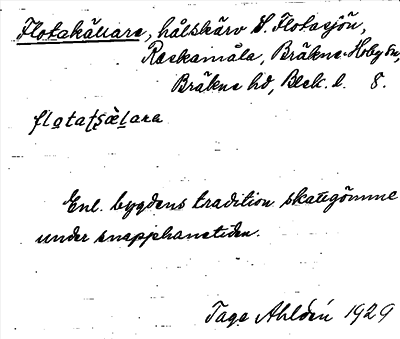 Flotakällare, hålskärv S. Flotasjön,
Raskamåla, Bräkne-Hoby sn,
Bräkne hd, Blek. l. 8.
flotatsälara
Enl. bygdens tradition skattgömme
under snapphanetiden.
Tage Ahldén 1929